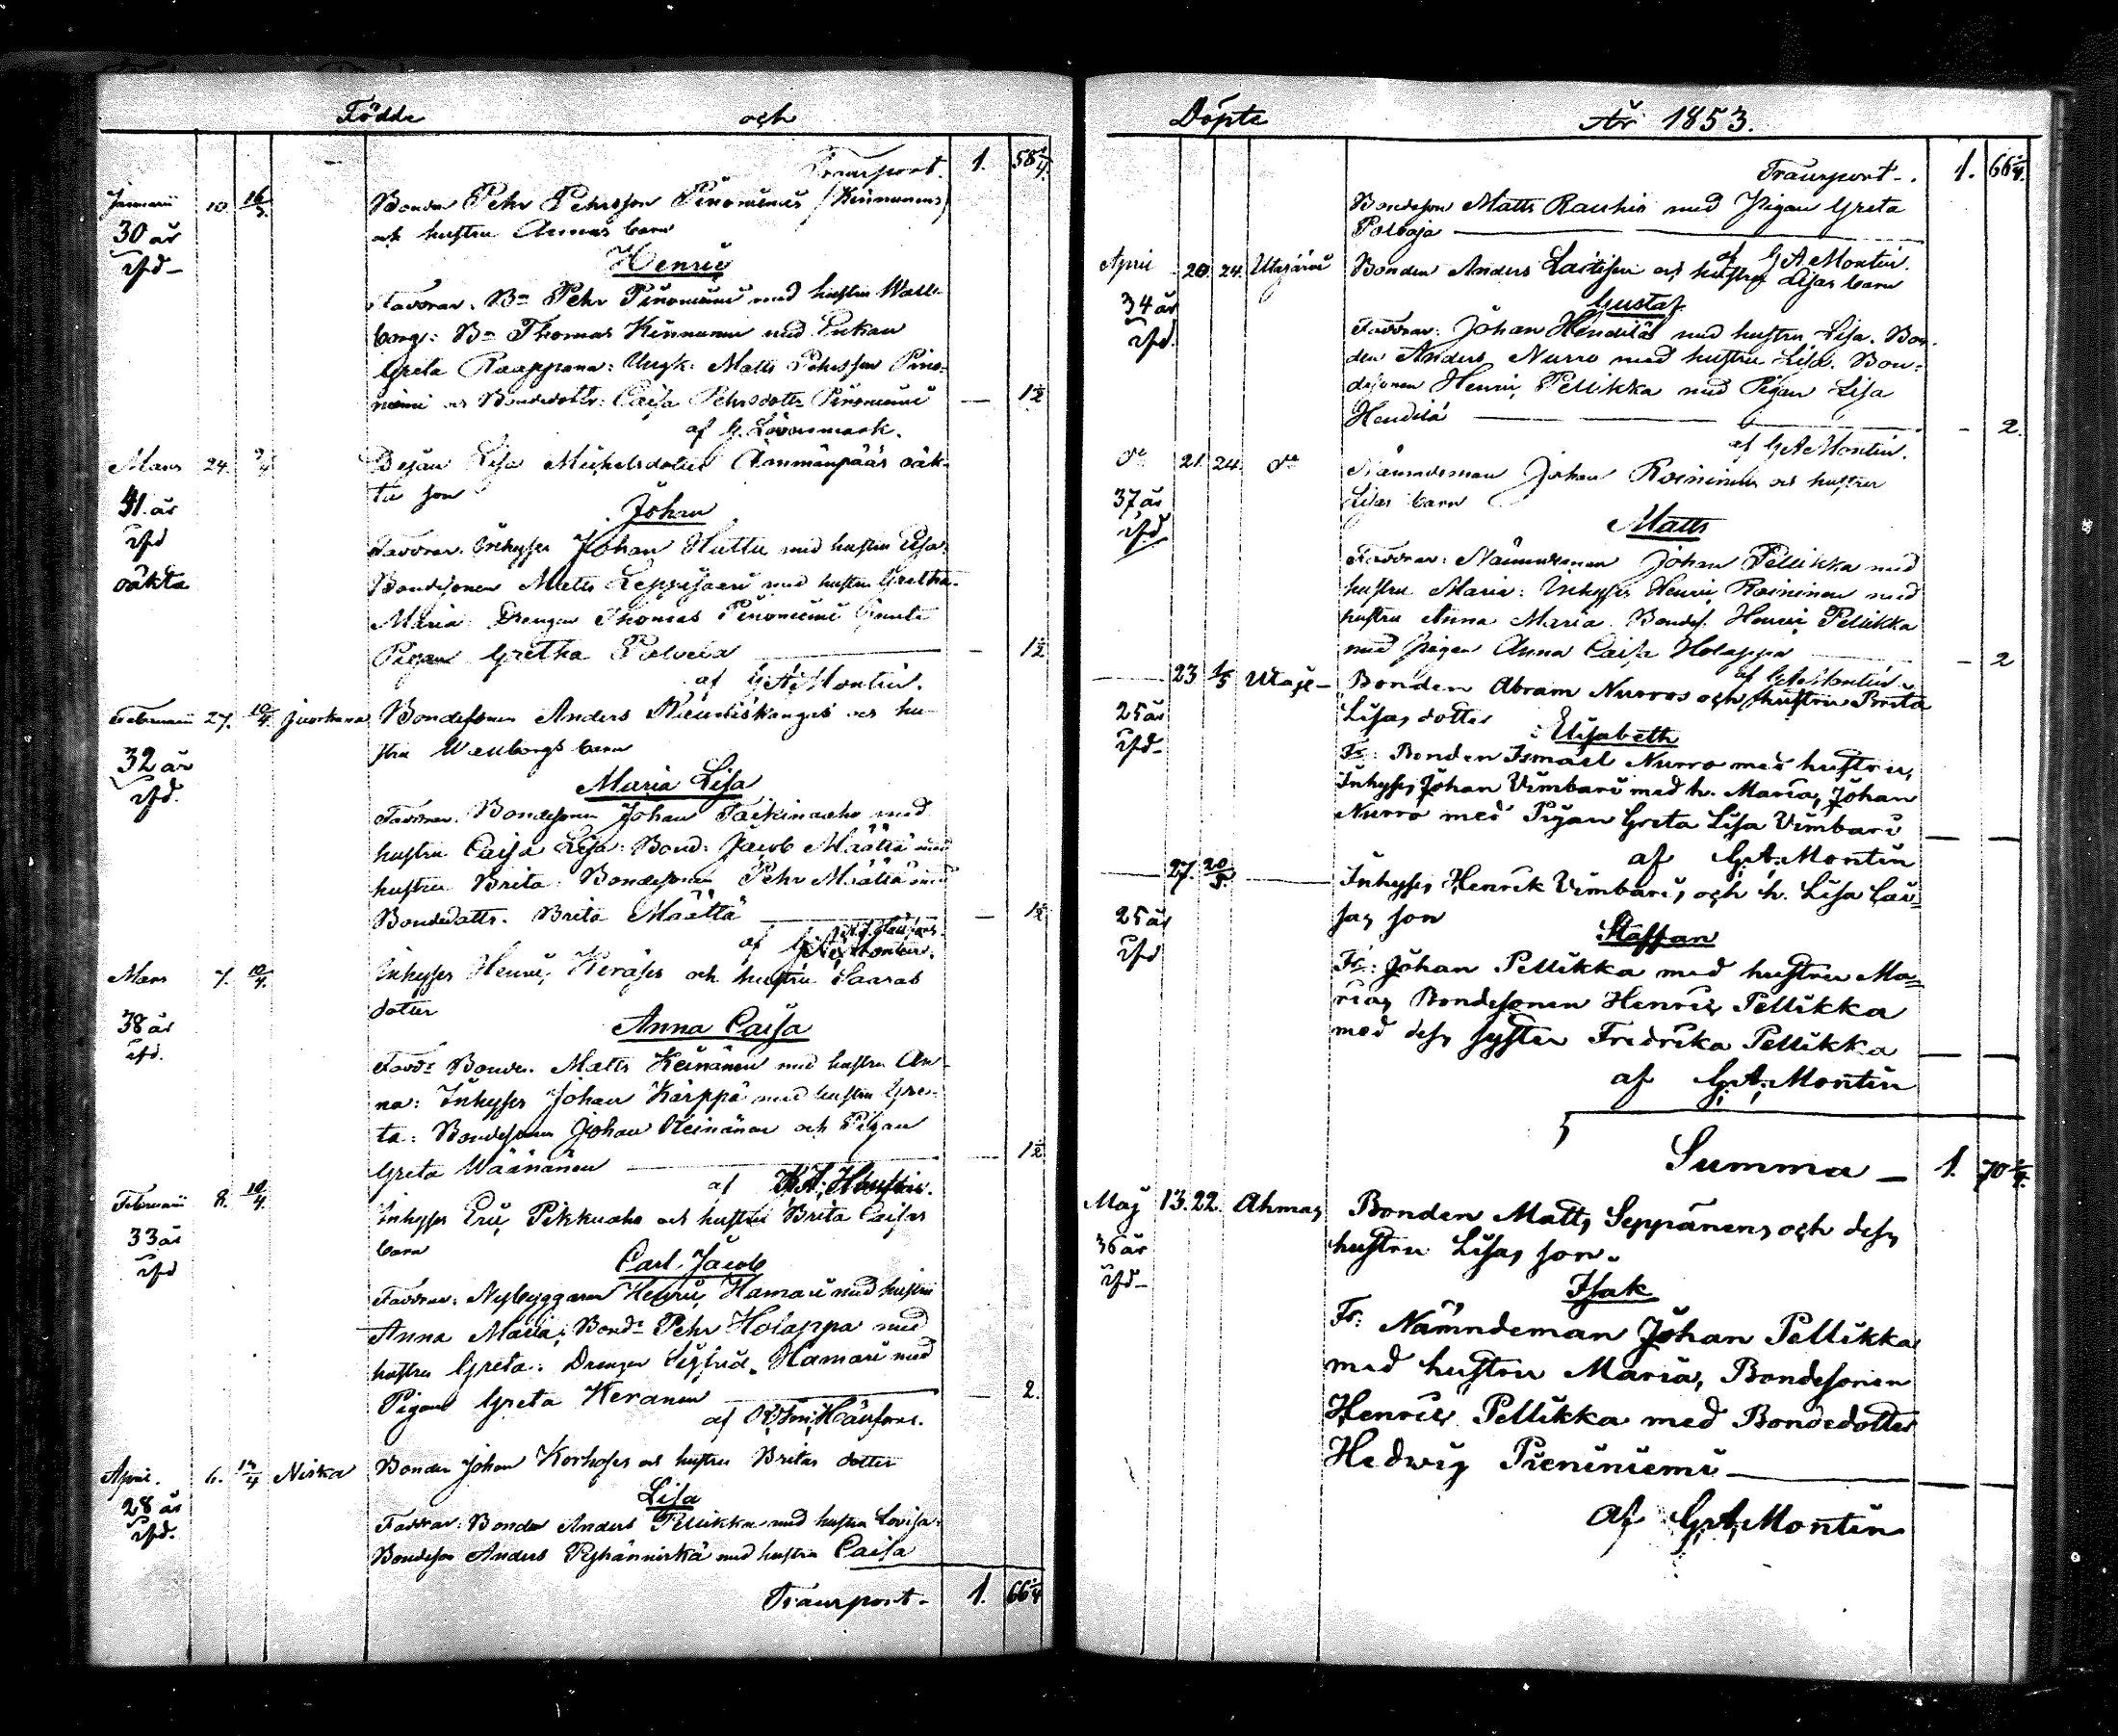 Födde och
Transport. 1. 58 1/4.
Januarii 10 16/3. Bonden Pehr Pehrsson Pinoniemis /Kinnunens/
30 år och hustru Annas barn
Henric
Faddrar. Bn Pehr Pinoniemi med hustru Wall-
borg: Bn Thomas Kinnunen med Enkan
Greta Raappana: Ungk: Matts Pehrsson Pino-
niemi och Bondedottr: Caisa Pehrsdottr Pinoniemi — 1 1/2
af G. Lövenmark.
Mars 24. 9/4 Lisa Michelsdotters Ammänpääs oäk-
41. år ta son
Johan
Faddrar. Inhyses Johan Huttu med hustru Lisa.
oäkta Bondesonen Matts Leppisaari med hustru Gretha
Maria: Drengen Thomas Pinoniemi
Pigan Gretha Polvela — 1 1/2
af G A Montin.
Februarii 27. 10/4. Juorkuna Bondesonen Anders Nieniskangas och hu-
32 år stru Walborgs barn
Maria Lisa
Faddrar. Bondesonen Johan Taikinaaho med
hustru Caisa Lisa: Bond: Jacob Määttä med
hustru Brita: Bondesonen Pehr Määttä med
Bondedottr. Brita Määttä — 1 1/2
af
Mars 7. 10/4. Inhyses Henric Keräses och hustru Saaras
dotter
38 år Anna Caisa
Faddr Bonden Matts Keinänen med hustru An-
na: Inhyses Johan Kärppä med hustru Gre-
ta: Bondesonen Johan Keinänen och Pigan
Greta Wäänänen — 1 1/2
af
Februarii 8. 10/4. Inhyses Eric Pikkuaho och hustru Brita Caisas
33 år barn
Carl Jacob
Faddrar: Nybyggaren Henric Hamari med hustru
Anna Maria: Bondr Pehr Holappa med
hustru Greta: Drengen Sigfrid Hamari med
Pigan Greta Keränen — 2.
af
April. 6. 17/4 Niska Bonden Johan Korhoses och hustru Britas dotter
28 år Lisa
Faddrar: Bonden Anders Pellikka med hustru Lovisa:
Bondeson Anders Pyhänniskä med hustru Caisa
Transport- 1. 66 1/4
Döpte År 1853.
Transport-. 1. 66 1/4.
Bondeson Matts Rauhio med Pigan Greta
Polvaja —
af G A Montin.
April 20. 24. Utajärvi Bonden Anders Laitisen och hustru Lisas barn
34 år Gustaf
Faddrar: Johan Hendilä med hustru Lisa. Bon-
den Anders Nurro med hustru Lisa. Bon-
desonen Henric Pellikka med Pigan Lisa
Hendilä — 2.
af G A Montin.
do 21. 24 do Nämndeman Johan Roininens och hustru
37 år Lisas barn
Matts
Faddrar: Nämndeman Johan Pellikka med
hustru Maria: Inhyses Henric Roininen med
hustru Anna Maria. Bondes. Henric Pellikka
med pigan Anna Caisa Holappa — 2
af G A Montin
— 23 1/5 Utaje- Bonden Abram Nurros och hustru Brita
25 år Lisas dotter
Elisabeth
Fr: Bonden Ismael Nurro med hustru,
Inhyses Johan Vimbari med h. Maria, Johan
Nurro med Pigan Greta Lisa Vimbari — —
af G. A. Montin
— 27. 20/5. — Inhyses Henrik Vimbaris, och h. Lisa Cai-
25 år sas son
Staffan
Fr: Johan Pellikka med hustru Ma-
rias Bondesonen Henric Pellikka
med dess syster Fredrika Pellikka — —
af G. A. Montin
Summa — 1. 70 1/4.
Maj 13. 22. Ahmas Bonden Matts Seppänens och dess
36 år hustru Lisas son.
Isak
Fr: Nämndeman Johan Pellikka
med hustru Maria, Bondesonen
Henric Pellikka med Bondedotter
Hedwig Pieniniemi —
af G. A. Montin